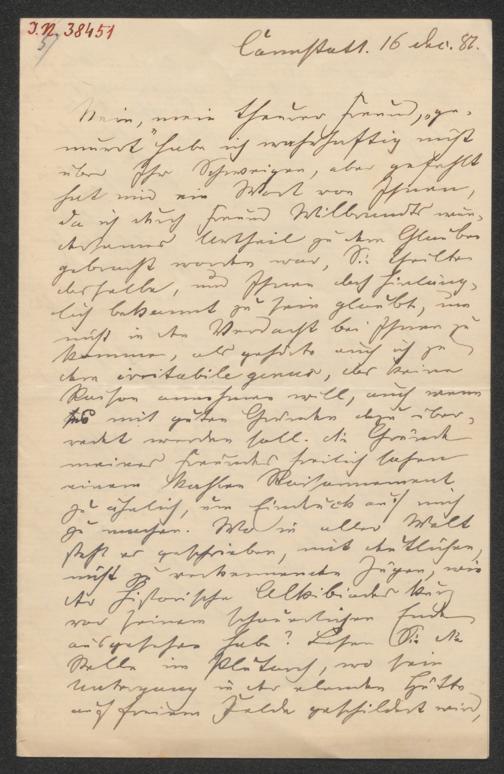 I.N. 38451
Cannstatt. 16 Dec. 82.
Nein, mein theurer Freund, „ge-
murrt" habe ich wahrhaftig nicht
über Ihr Schweigen, aber gefehlt
hat mir ein Wort von Ihnen,
da ich durch Freund Wilbrandts wun-
dersames Urtheil zu dem Glauben
gebracht worden war, Sie theilten
dasselbe, und Ihnen doch hinläng-
lich bekannt zu sein glaubte, um
nicht in den Verdacht bei Ihnen zu
kommen, als gehörte auch ich zu
dem irritabile genus, das keine
Raison annehmen will, auch wenn
es mit guten Gründen dazu über-
redet werden soll. Die Gründe
meines Freundes freilich sahen
einem kahlen Raisonnement
zu ähnlich, um Eindruck auf mich
zu machen. Wo in aller Welt
steht es geschrieben, mit deutlichen,
nicht zu verkennenden Zügen, wie
der historische Alkibiades kurz
vor seinem schauerlichen Ende
ausgesehen habe? Lesen Sie die
Stelle im Plutarch, wo sein
Untergang in der elenden Hütte
auf freiem Felde geschildert wird,